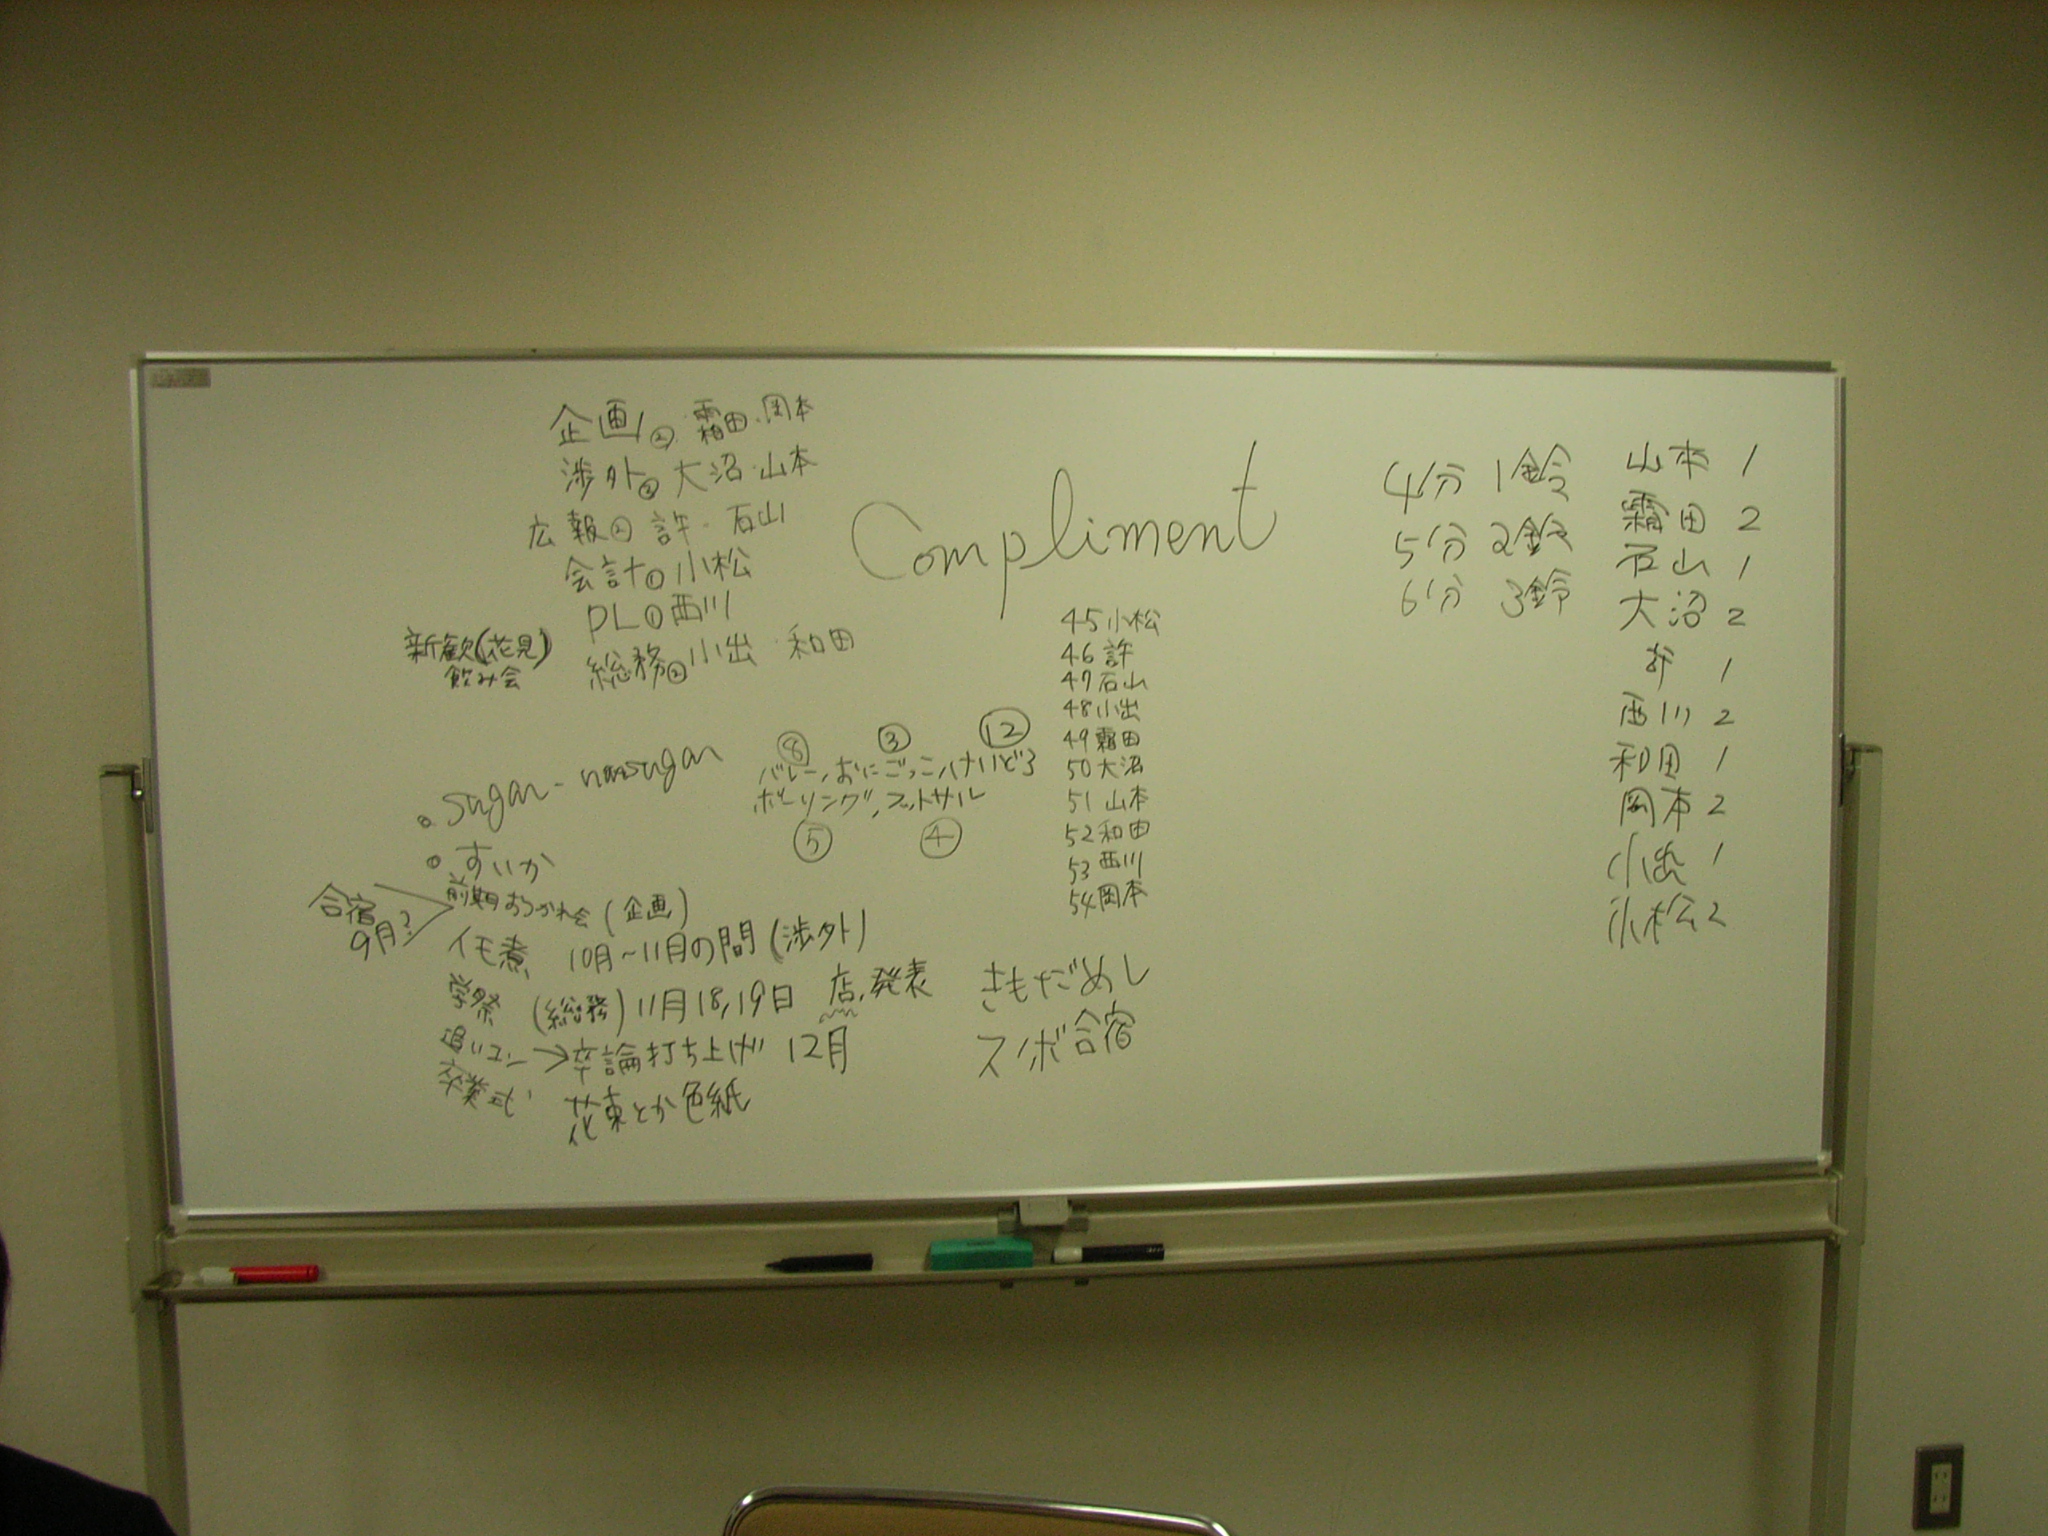 企画② 霜田・岡本
渉外② 大沼・山本
広報② 許・石山
会計① 小松
PL① 西川
総務② 小出・和田
新歓(花見)
飲み会
Compliment
4分 1鈴
5分 2鈴
6分 3鈴
山本 1
霜田 2
石山 1
大沼 2
許 1
西川 2
和田 1
岡本 2
小出 1
小松 2
45 小松
46 許
47 石山
48 小出
49 霜田
50 大沼
51 山本
52 和田
53 西川
54 岡本
sugar-nonsugar
⑧ ③ ⑫
バレー,おにごっこ,けいどろ
ボーリング,フットサル
⑤ ④
すいか
合宿
9月?
前期おつかれ会(企画)
イモ煮 10月~11月の間(渉外)
学祭 (総務) 11月18,19日 店,発表
追いコン→卒論打ち上げ 12月
卒業式 花束とか色紙
きもだめし
スノボ合宿